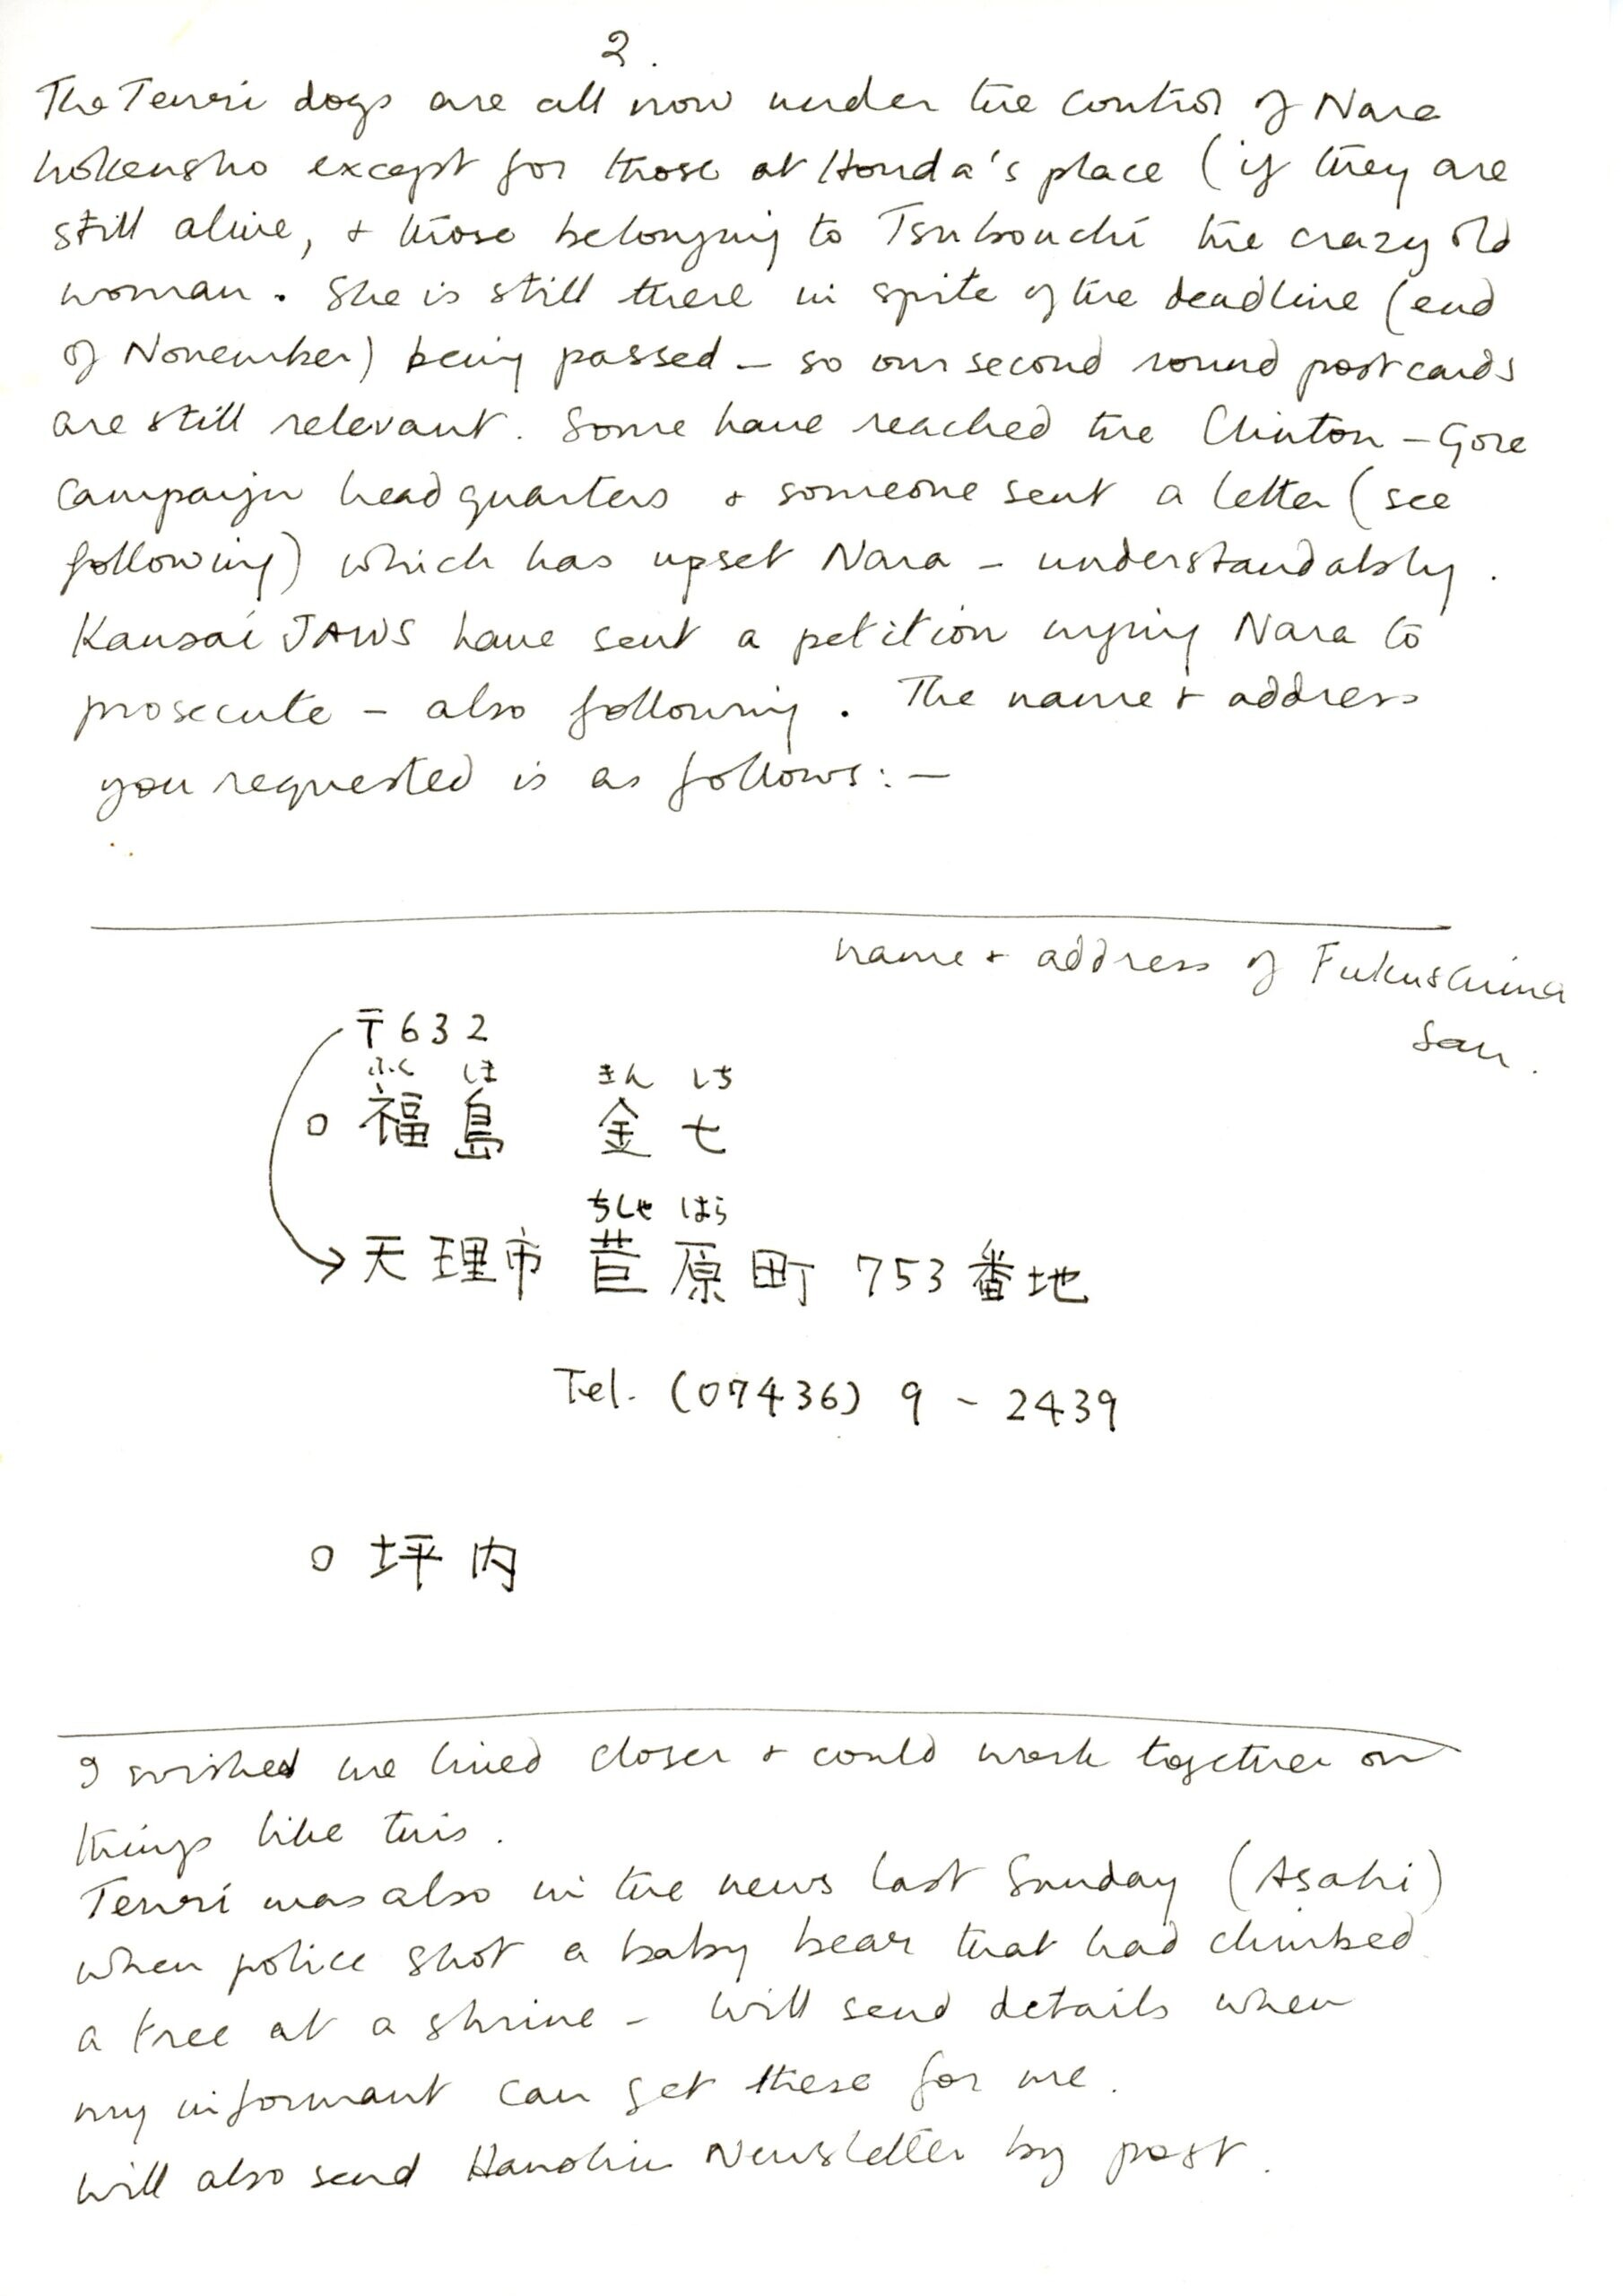 2.
The Tenri dogs are all now under the control of Nara
hokensho except for those at Honda's place (if they are
still alive, + those belonging to Tsubouchi the crazy old
woman. She is still there in spite of the deadline (end
of November) being passed - so our second round postcards
are still relevant. Some have reached the Clinton - Gore
campaign headquarters + someone sent a letter (see
following) which has upset Nara - understandably.
Kansai JAWS have sent a petition urging Nara to
prosecute - also following. The name + address
you requested is as follows: -
name + address of Fukushima
San.
〒632
ふく しま きん しち
○ 福島 金七
ちしゃ はら
天理市 苣原町 753番地
Tel. (07436) 9 - 2439
○ 坪内
I wished we lived closer + could work together on
things like this.
Tenri was also in the news last Sunday (Asahi)
when police shot a baby bear that had climbed
a tree at a shrine - will send details when
my informant can get these for me.
Will also send Hanshin Newsletter by post.